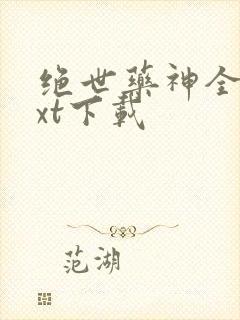 绝世药神全
xt下载
范湖